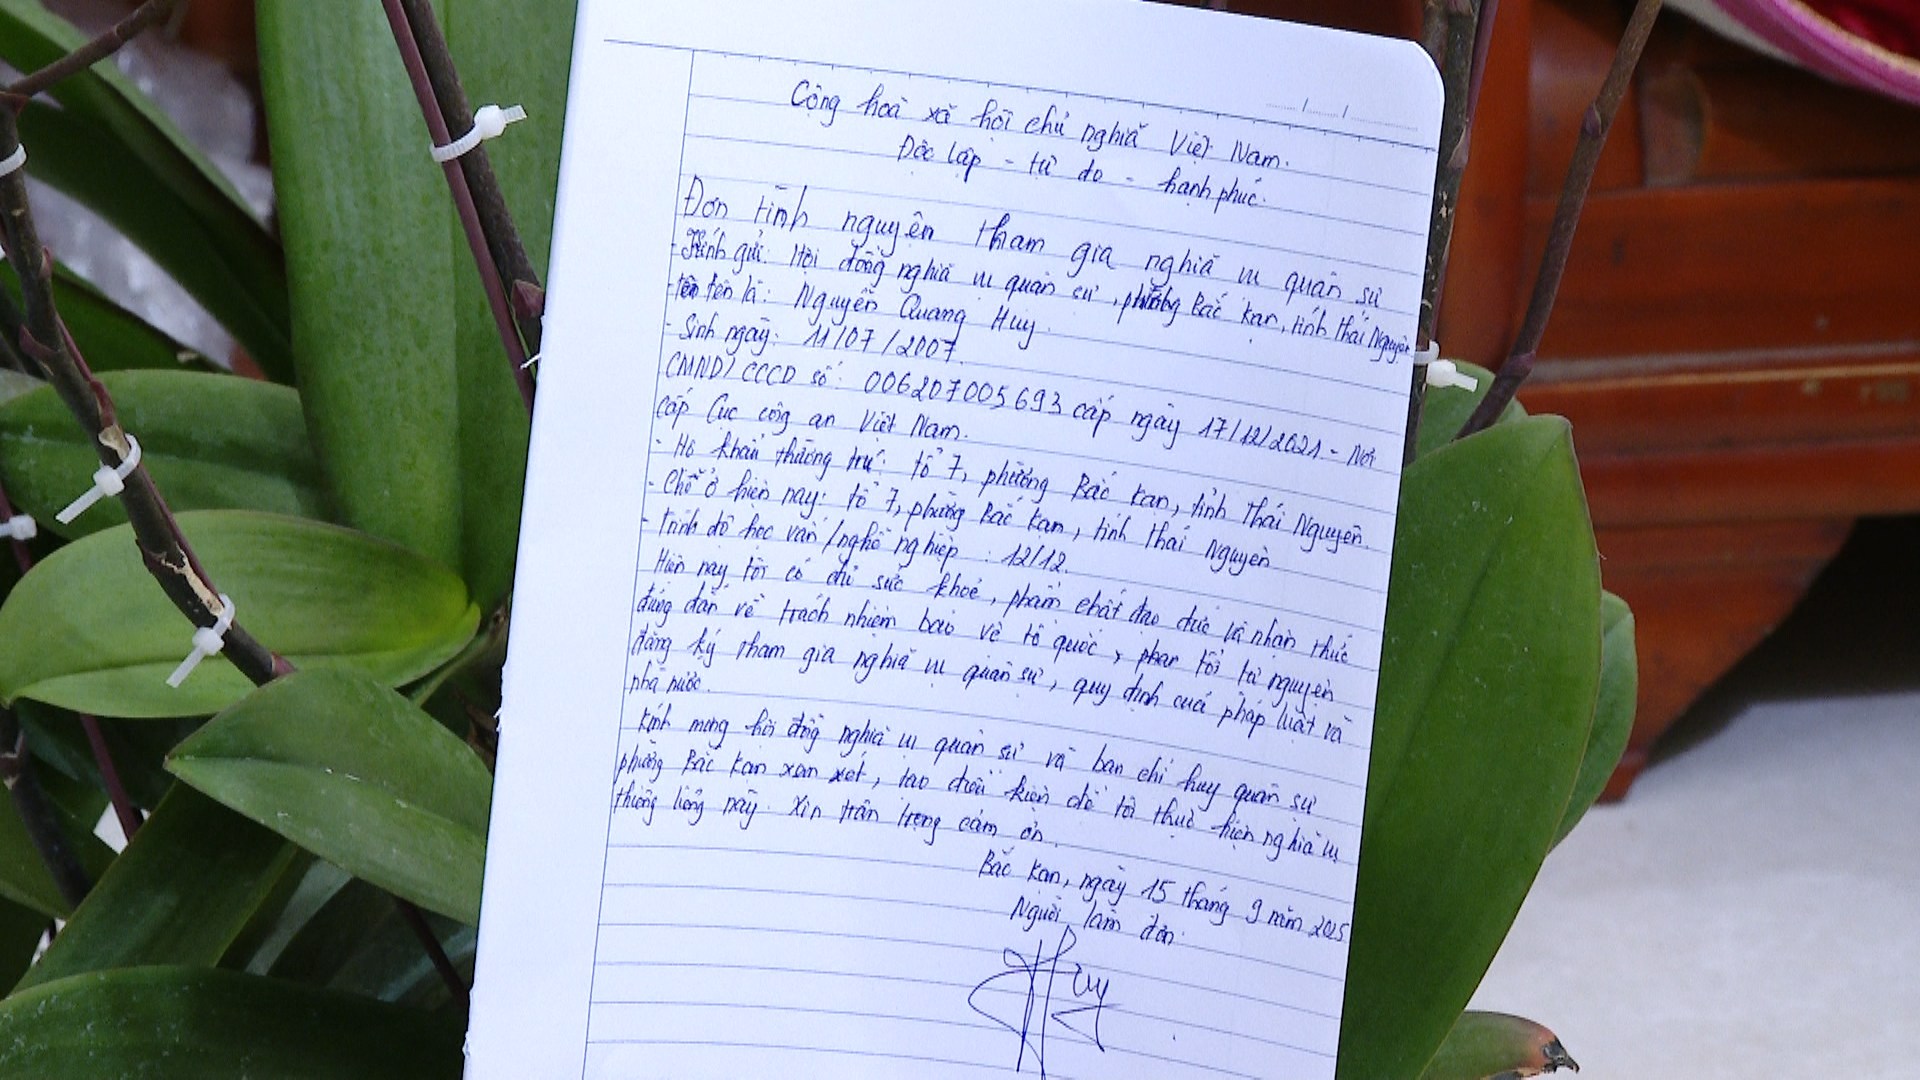 Cộng hoà xã hội chủ nghiã Việt Nam.
Độc lập - tự do - hạnh phúc.
Đơn tình nguyện tham gia nghiã vụ quân sự
- Kính gửi: Hội đồng nghiã vụ quân sự, phường Bắc Kạn, tỉnh Thái Nguyên
- Tôi tên là: Nguyễn Quang Huy.
- Sinh ngày: 11/07/2007
CMND/CCCD số: 006207005693 cấp ngày 17/12/2021 - Nơi
cấp Cục công an Việt Nam.
- Hộ khẩu thường trú: tổ 7, phường Bắc Kạn, tỉnh Thái Nguyên.
- Chỗ ở hiện nay: tổ 7, phường Bắc Kạn, tỉnh Thái Nguyên
- Trình độ học vấn/nghề nghiệp: 12/12.
Hiện nay tôi có đủ sức khoẻ, phẩm chất đạo đức và nhận thức
đúng đắn về trách nhiệm bảo vệ tổ quốc, phan tôi tự nguyện
đăng ký tham gia nghiã vụ quân sự, quy định của pháp luật và
nhà nước.
Kính mong hội đồng nghiã vụ quân sự và ban chỉ huy quân sự
phường Bắc Kạn xem xét, tạo điều kiện để tôi thực hiện nghiã vụ
thiêng liêng này. Xin trân trọng cảm ơn.
Bắc Kạn, ngày 15 tháng 9 năm 2025
Người làm đơn.
Huy